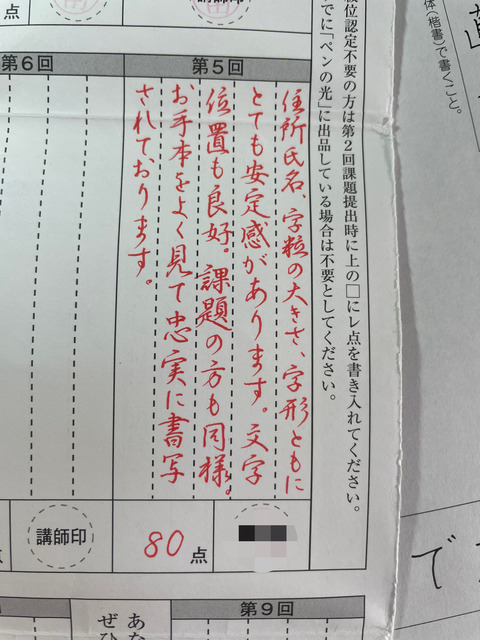 体(楷書)で書くこと。
位認定不要の方は第2回課題提出時に上の□にレ点を書き入れてください。
でに「ペンの光」に出品している場合は不要としてください。
点
第5回
住所氏名、字粒の大きさ、字形ともに
とても安定感があります。文字
位置も良好。課題の方も同様。
お手本をよく見て忠実に書写
されております。
80点
第6回
講師印
点
第9回
あな
ぜひ
で